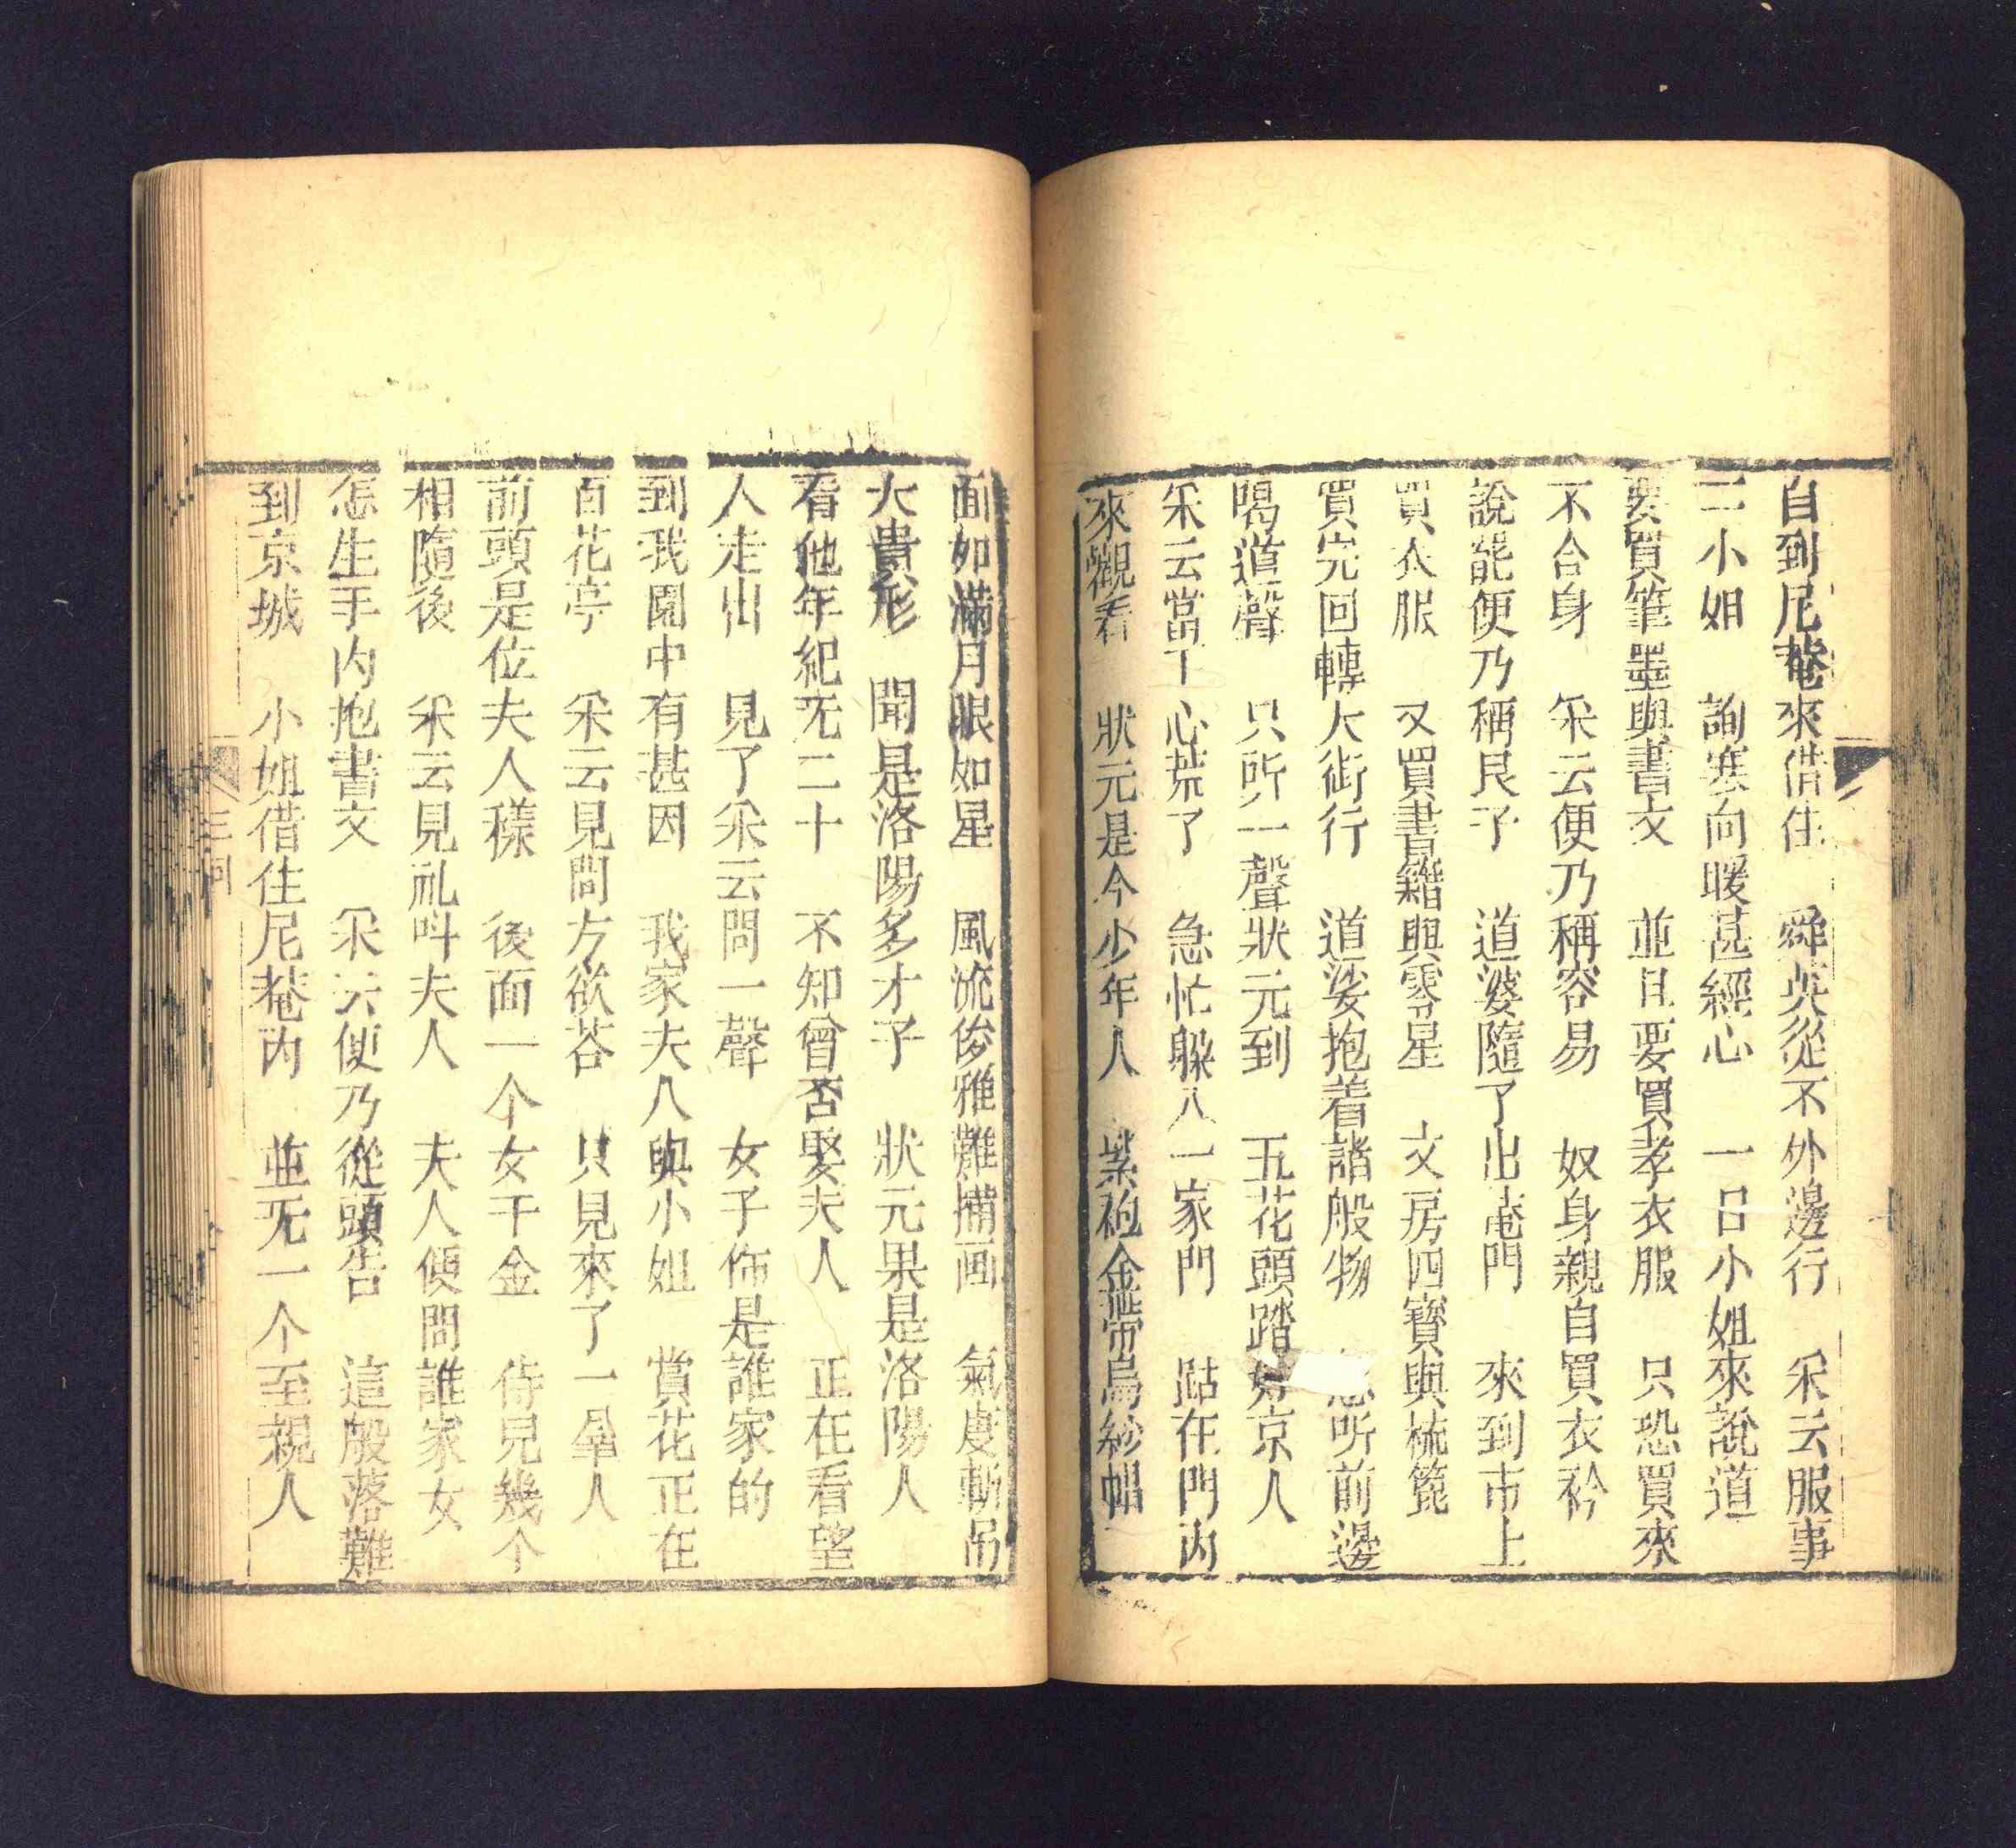 自到尼菴來借住　舜英從不外邊行　采云服事
二小姐　詢寒向暖甚經心　一日小姐來說道
要買筆墨與書文　並且要買孝衣服　只恐買來
不合身　采云便乃稱容易　奴身親自買衣衿
說罷便乃稱艮子　道婆隨了出菴門　來到市上
買衣服　又買書籍與零星　文房四寶與梳篦
買完回轉大街行　道婆抱着諸般物　听前邊
喝道聲　只听一聲狀元到　五花頭踏京人
采云當下心荒了　急忙躲入一家門　跕在門內
來觀看　狀元是个少年人　紫袍金帶烏紗帽
面如滿月眼如星　風流俊雅難描画　氣度軒昂
大貴形　聞是洛陽多才子　狀元果是洛陽人
看他年紀无二十　不知曾否娶夫人　正在看望
人走出　見了采云問一聲　女子你是誰家的
到我園中有甚因　我家夫人與小姐　賞花正在
百花亭　采云見問方欲荅　只見來了一羣人
前頭是位夫人樣　後面一个女千金　侍兒幾个
相隨後　采云見礼呌夫人　夫人便問誰家女
怎生手內抱書文　采云便乃從頭告　這般落難
到京城　小姐借住尼菴內　並无一个至親人